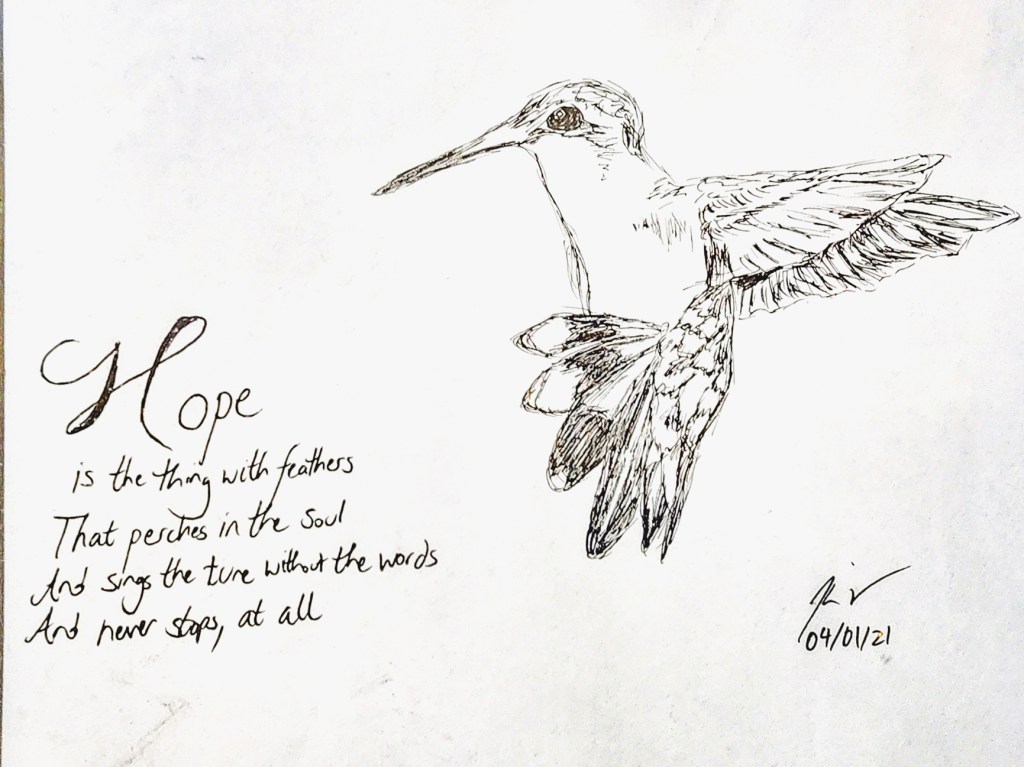 Hope
is the thing with feathers
That perches in the soul
And sings the tune without the words
And never stops, at all
04/01/21